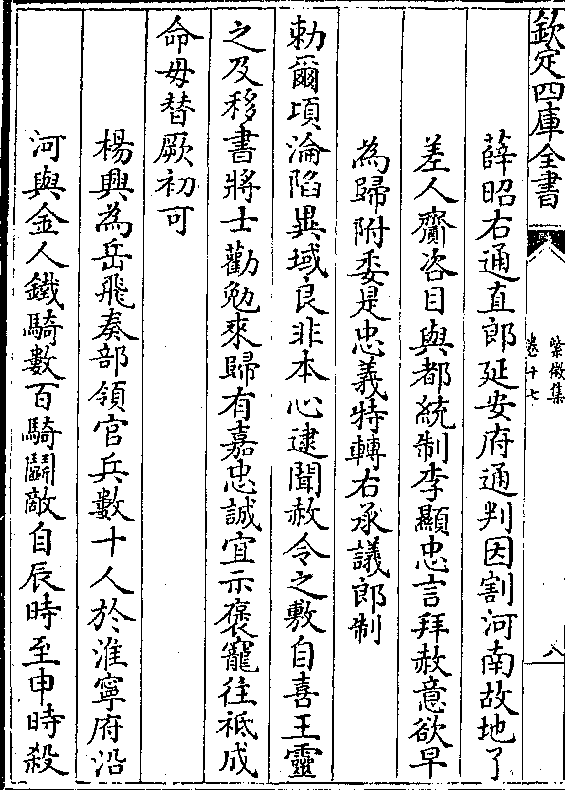 欽定四庫全書
紫微集
卷十七
八
薛昭右通直郎延安府通判因割河南故地了
差人齎咨目與都統制李顯忠言拜赦意欲早
為歸附委是忠義特轉右承議郎制
勅爾項淪陷異域良非本心逮聞赦令之敷自喜王靈
之及移書將士勸勉來歸有嘉忠誠宜示褒寵往祗成
命毋替厥初可
楊興為岳飛奏部領官兵數十人於淮寧府沿
河與金人鐵騎數百騎鬭敵自辰時至申時殺